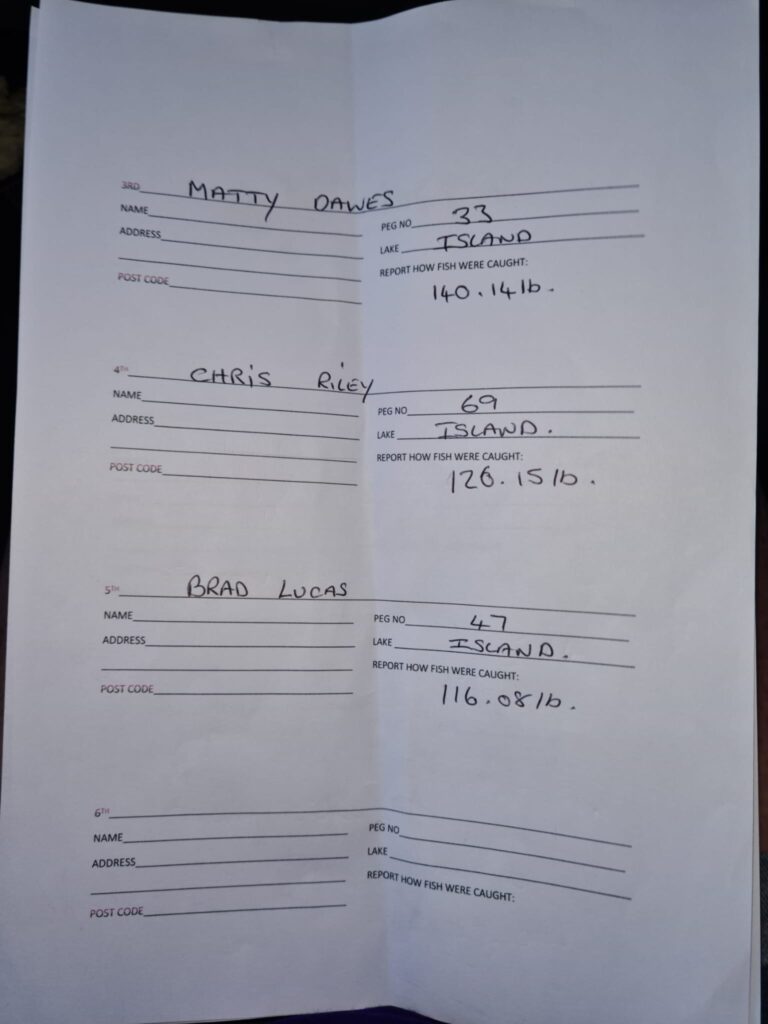 3RD MATTY DAWES
NAME
PEG NO 33
ADDRESS
LAKE ISLAND
REPORT HOW FISH WERE CAUGHT:
POST CODE
140.14lb.
4TH CHRIS RILEY
NAME
PEG NO 69
ADDRESS
LAKE ISLAND.
REPORT HOW FISH WERE CAUGHT:
POST CODE
126.15lb.
5TH BRAD LUCAS
NAME
PEG NO 47
ADDRESS
LAKE ISLAND.
REPORT HOW FISH WERE CAUGHT:
POST CODE
116.08lb.
6TH
NAME
PEG NO
ADDRESS
LAKE
REPORT HOW FISH WERE CAUGHT:
POST CODE